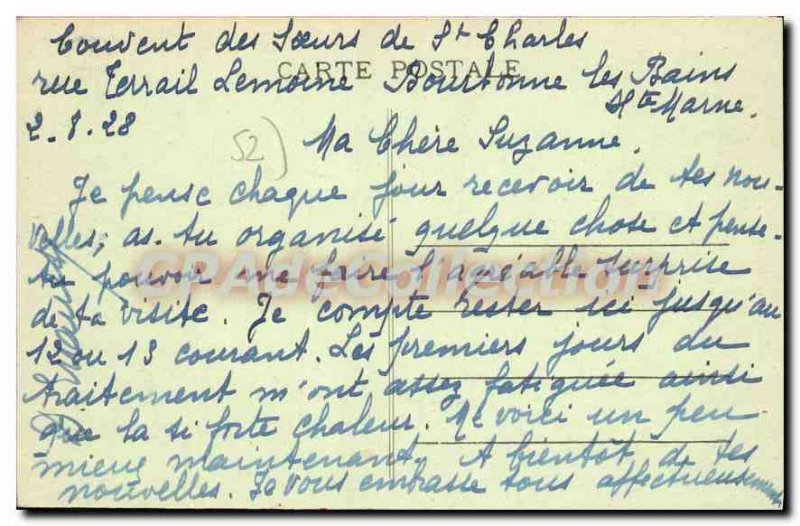 Couvent des Sœurs de St Charles
CARTE POSTALE
rue Terrail Lemoine Bourbonne les Bains
Hte Marne.
2.8.28
52)
Ma Chère Suzanne.
Je pense chaque jour recevoir de tes nou-
velles, as-tu organisé quelque chose et pense-
tu pouvoir me faire l'agréable surprise
de ta visite. Je compte rester ici jusqu'au
12 ou 13 courant. Les premiers jours du
traitement m'ont assez fatiguée ainsi
que la si forte chaleur. Me voici un peu
mieux maintenant. A bientôt de tes
nouvelles. Je vous embrasse tous affectueusement
CPADeCollection